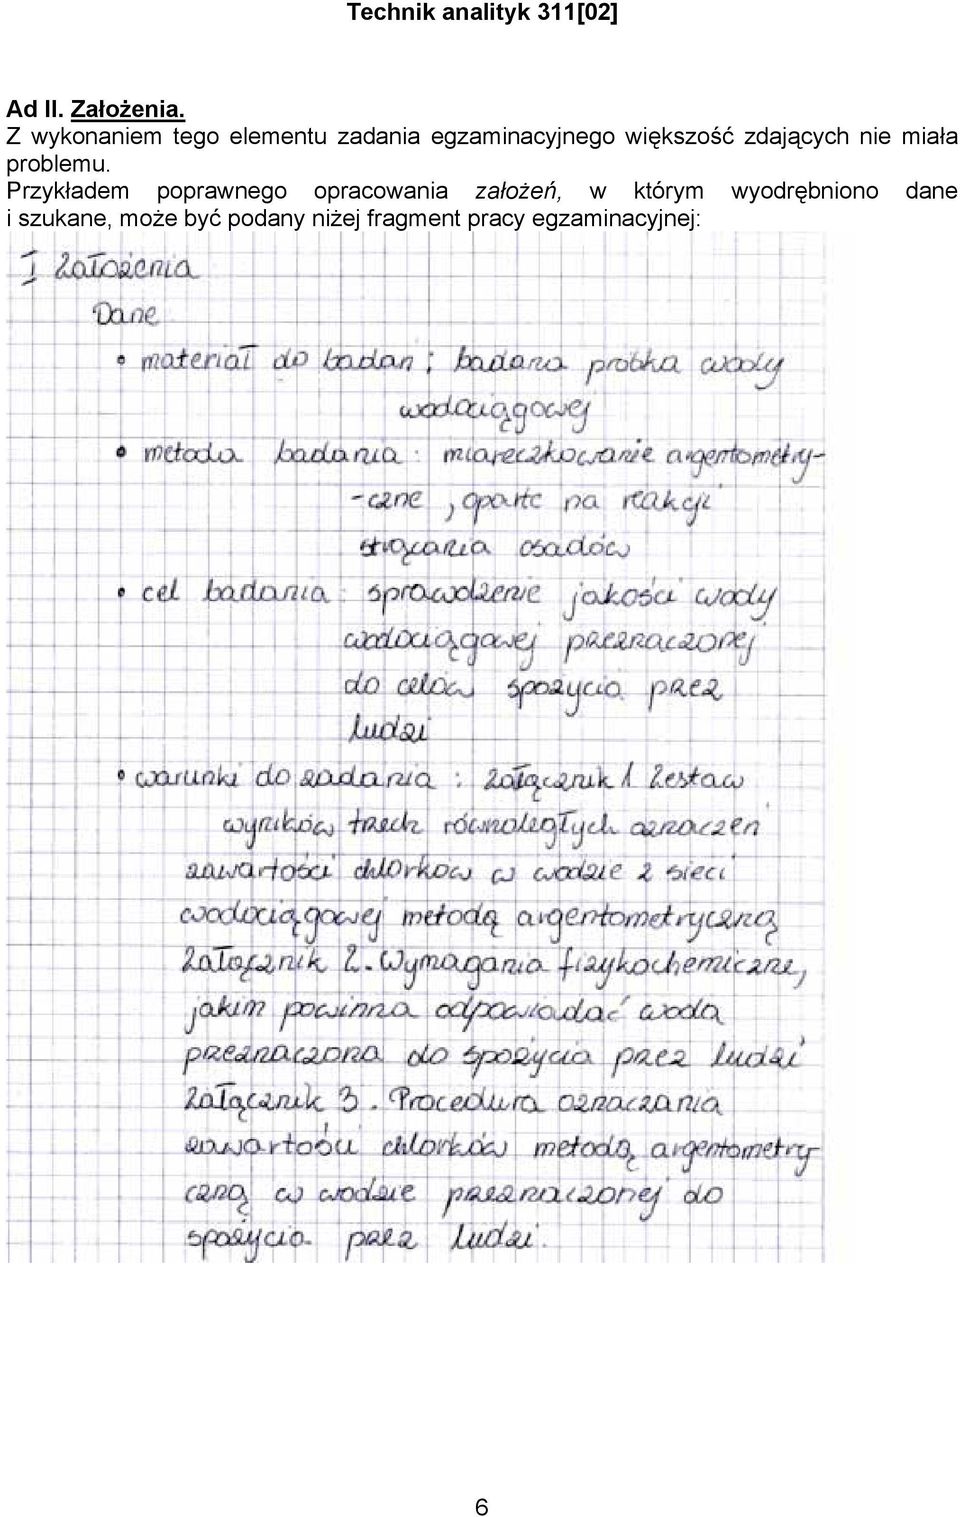 Technik analityk 311[02]
Ad II. Założenia.
Z wykonaniem tego elementu zadania egzaminacyjnego większość zdających nie miała
problemu.
Przykładem poprawnego opracowania założeń, w którym wyodrębniono dane
i szukane, może być podany niżej fragment pracy egzaminacyjnej:
I Założenia
Dane
• materiał do badań; badana próbka wody
wodociągowej
• metoda badania: miareczkowanie argentometry-
-czne, oparte na reakcji
strącania osadów
• cel badania: sprawdzenie jakości wody
wodociągowej przeznaczonej
do celów spożycia przez
ludzi
• warunki do zadania: załącznik 1 Zestaw
wyników trzech równoległych oznaczeń
zawartości chlorków w wodzie z sieci
wodociągowej metodą argentometryczną
Załącznik 2. Wymagania fizykochemiczne,
jakim powinna odpowiadać woda
przeznaczona do spożycia przez ludzi
Załącznik 3. Procedura oznaczania
zawartości chlorków metodą argentometry-
czną w wodzie przeznaczonej do
spożycia przez ludzi.
6